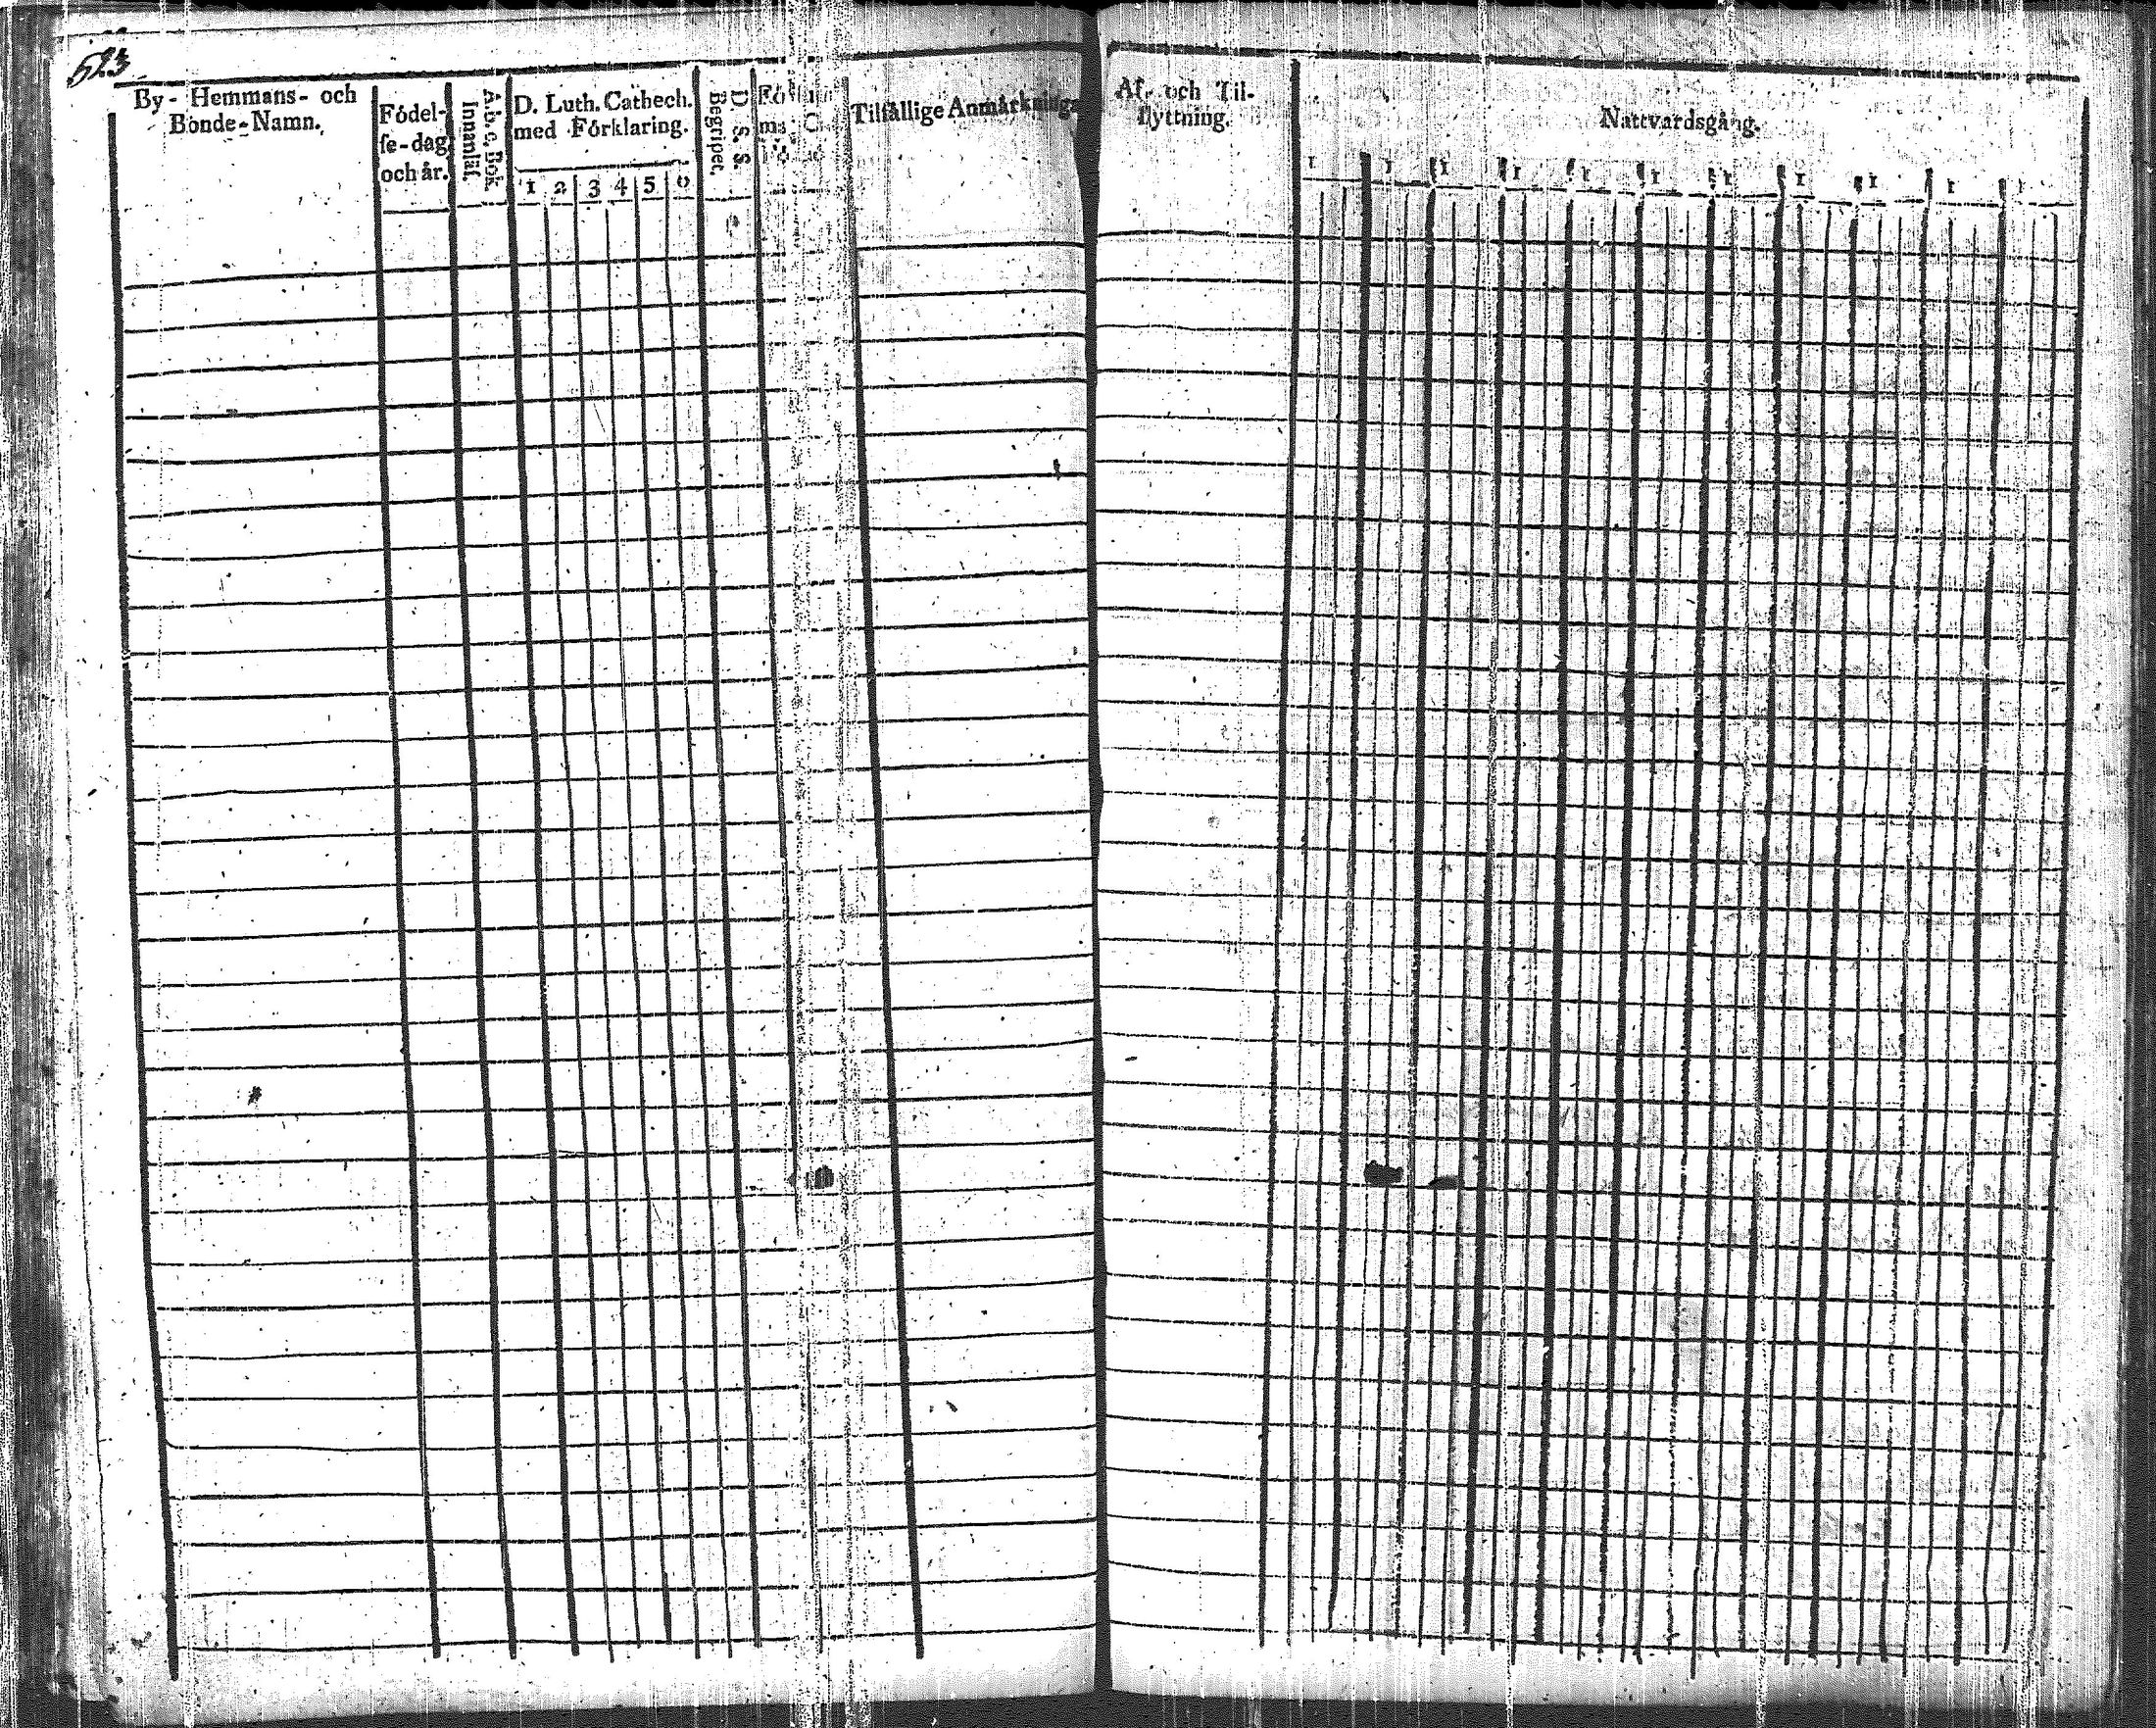 523
By- Hemmans- och
Bonde-Namn.
Födel-
se-dag
och år.
A.b.c. Bok.
Innanläs.
D. Luth. Cathech.
med Förklaring.
1 2 3 4 5 6
D. S. S.
Begripet.
Tilfällige Anmärkninga
Af- och Til-
flyttning.
Nattvardsgång.
1 1 1 1 1 1 1 1 1 1 1